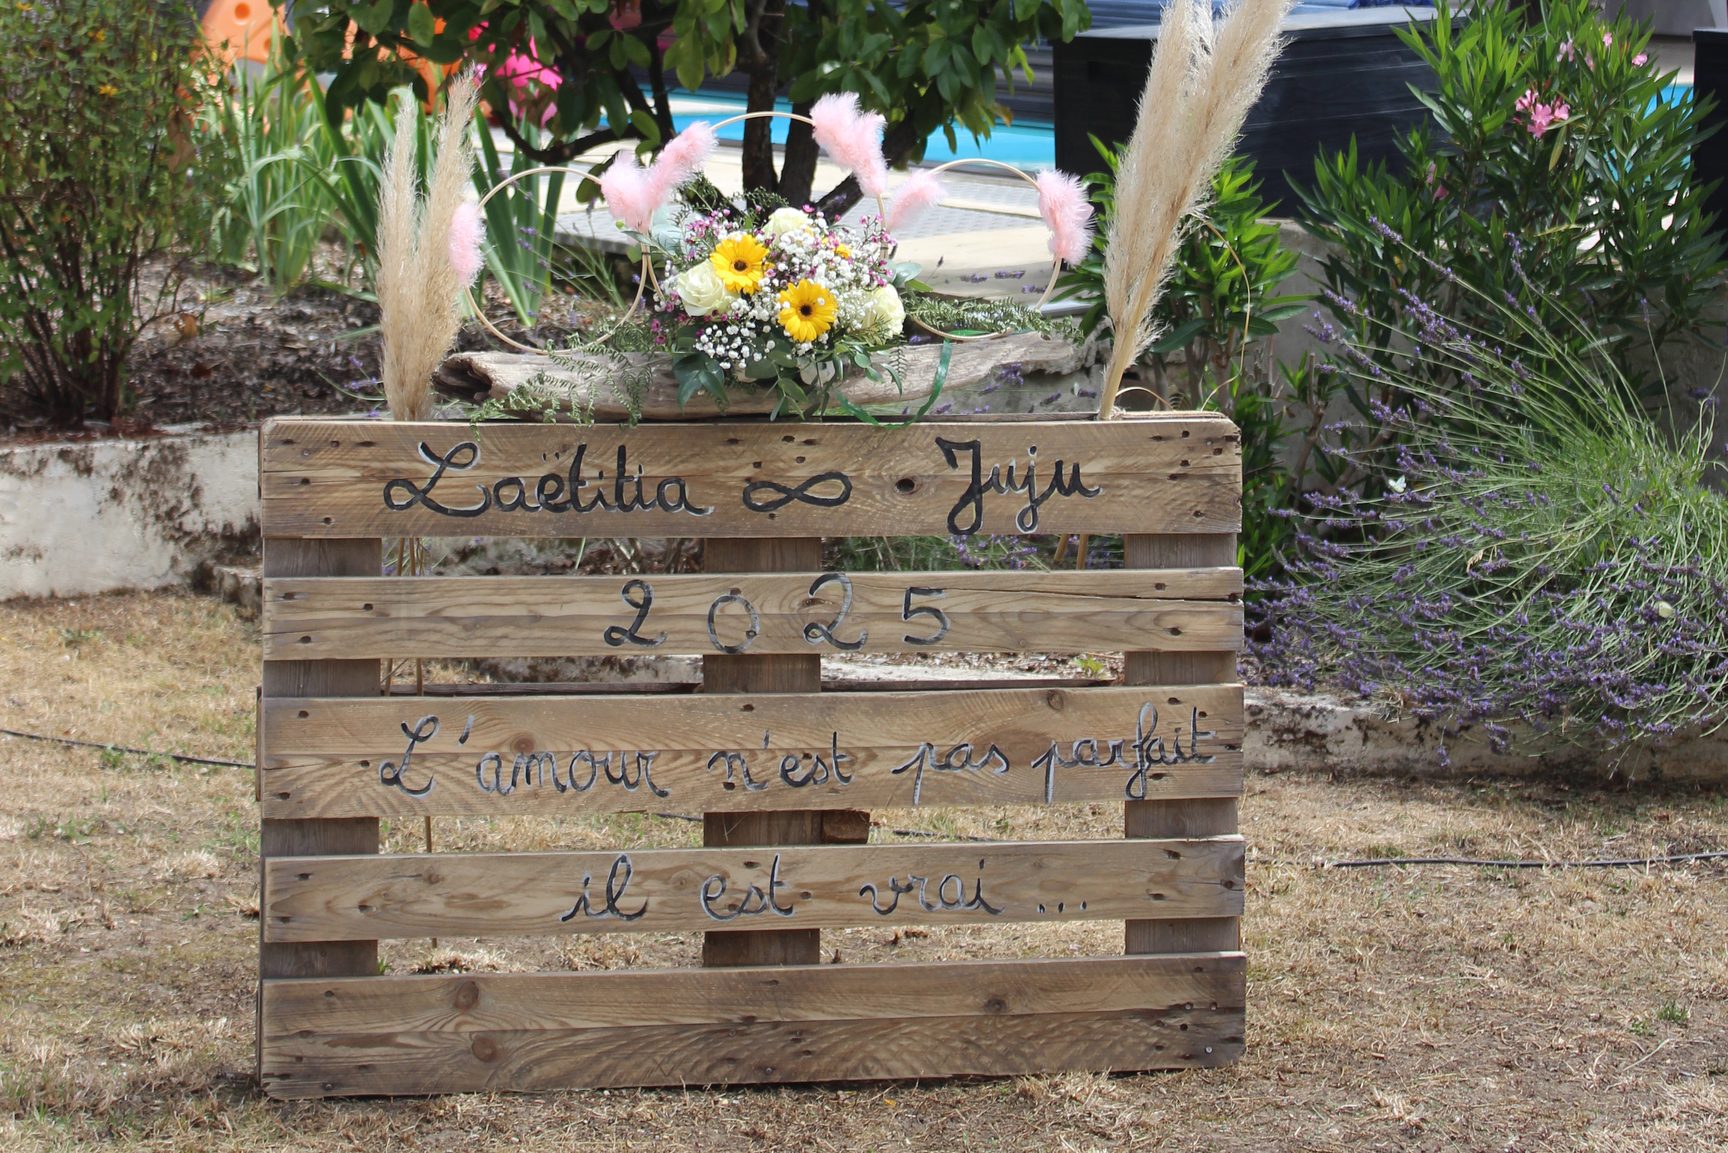 Laëtitia ∞ Juju
2025
L'amour n'est pas parfait
il est vrai ...